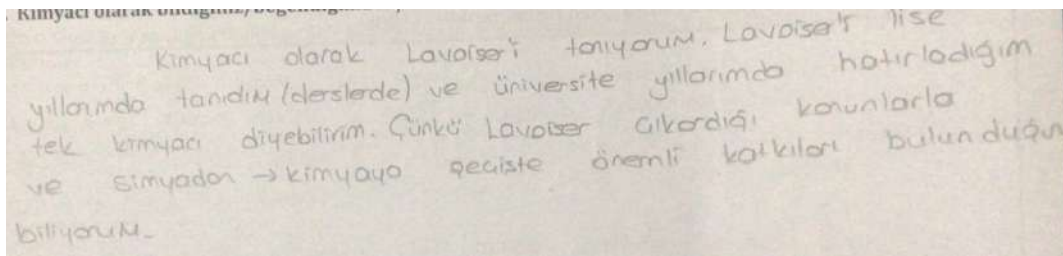 Kimyacı olarak
Kimyacı olarak Lavoiser'i tanıyorum. Lavoiser'i lise
yıllarımda tanıdım (derslerde) ve üniversite yıllarımda hatırladığım
tek kimyacı diyebilirim. Çünkü Lavoiser çıkardığı kanunlarla
ve simyadan → kimyaya geçişte önemli katkıları bulunduğun
biliyorum.